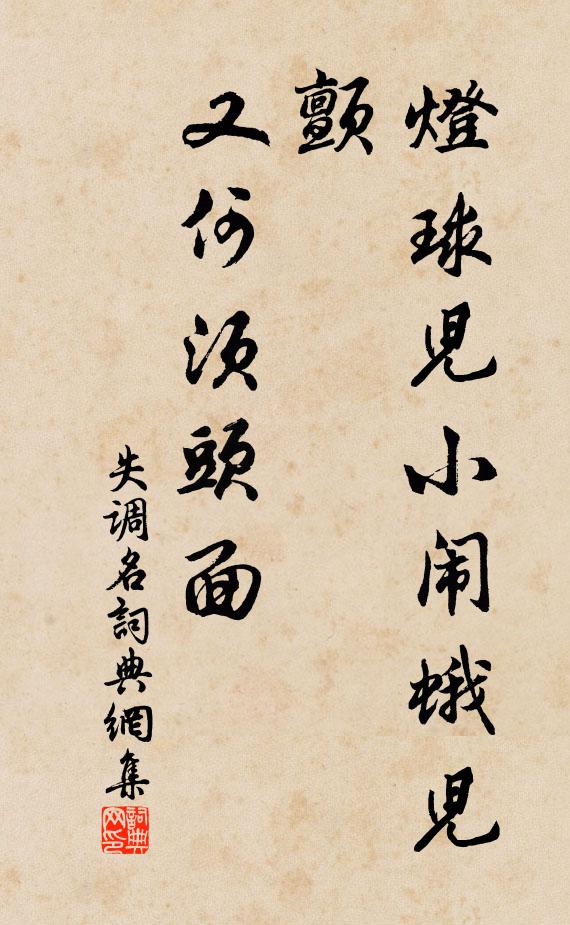 燈球兒小闹蛾兒
顫
又何須頭面
失调名詞典網集
詞典
网印